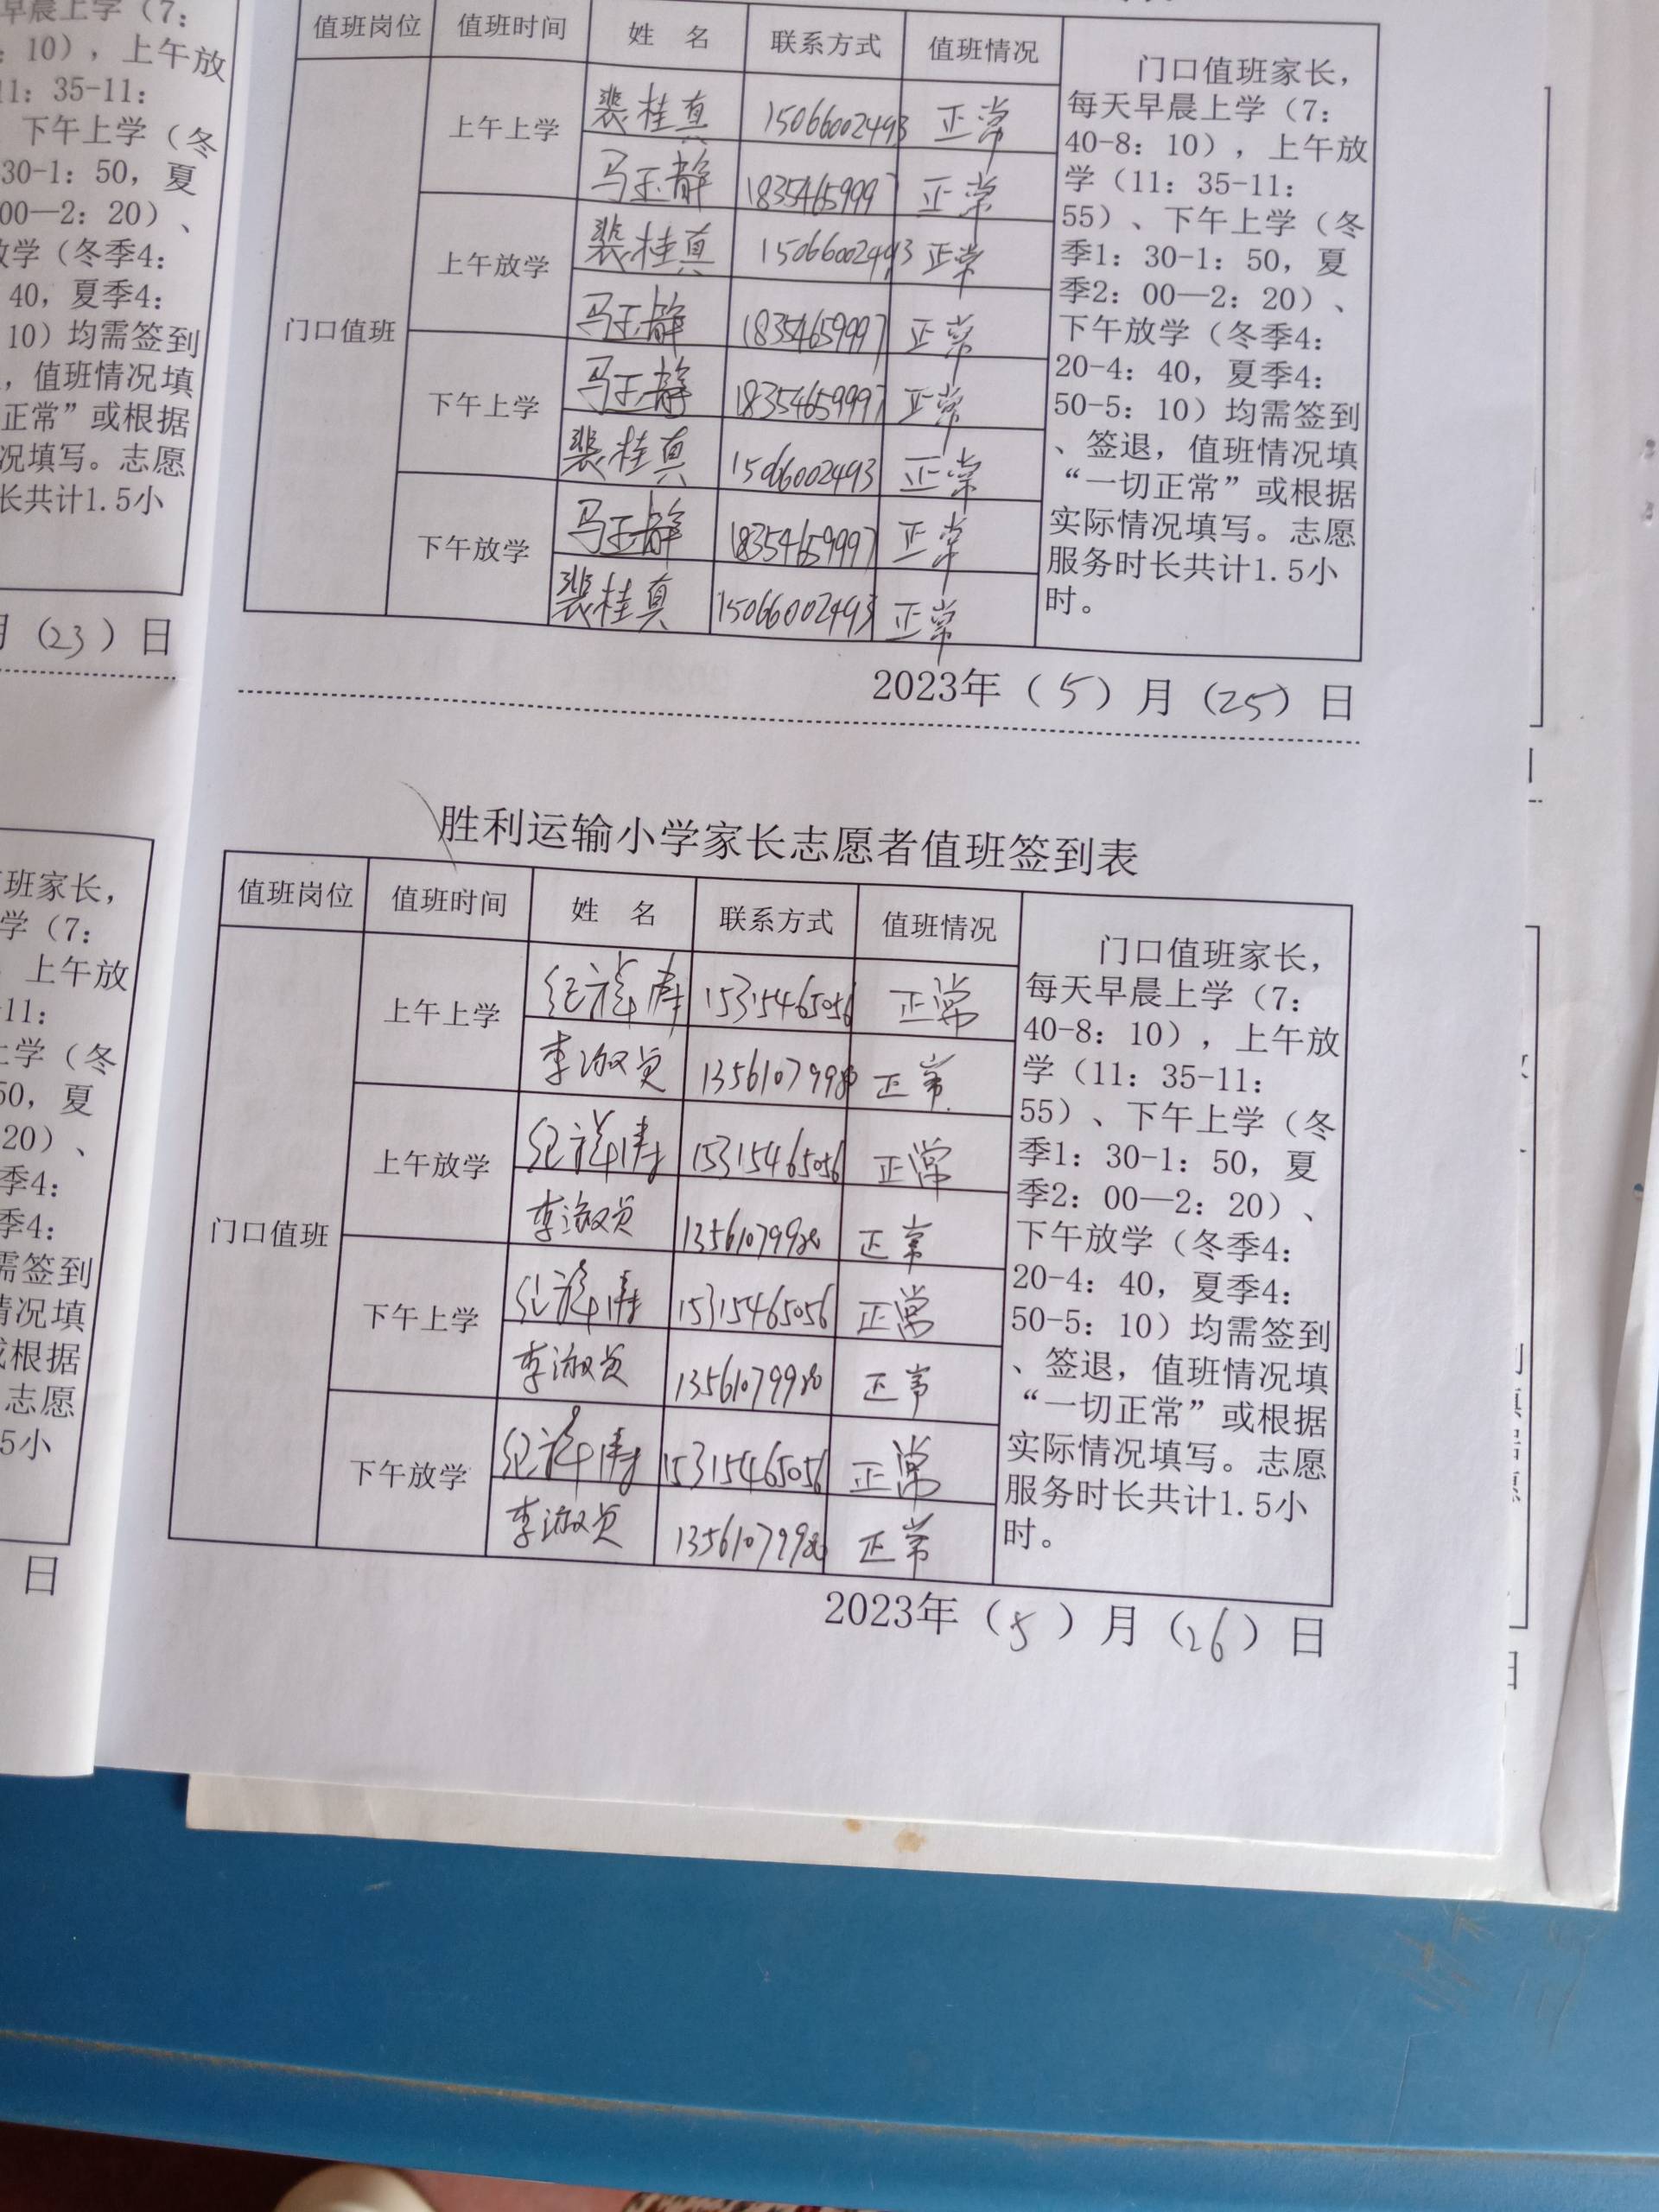 早晨上学（7：
：10），上午放
11：35-11：
下午上学（冬
30-1：50，夏
00—2：20）、
放学（冬季4：
40，夏季4：
10）均需签到
，值班情况填
正常”或根据
况填写。志愿
长共计1.5小
月（23）日
值班岗位 值班时间 姓 名 联系方式 值班情况
门口值班
上午上学
裴桂真 15066002493 正常
马玉静 18354659997 正常
上午放学
裴桂真 15066002493 正常
马玉静 18354659997 正常
下午上学
马玉静 18354659997 正常
裴桂真 15066002493 正常
下午放学
马玉静 18354659997 正常
裴桂真 15066002493 正常
门口值班家长，
每天早晨上学（7：
40-8：10），上午放
学（11：35-11：
55）、下午上学（冬
季1：30-1：50，夏
季2：00—2：20）、
下午放学（冬季4：
20-4：40，夏季4：
50-5：10）均需签到
、签退，值班情况填
“一切正常”或根据
实际情况填写。志愿
服务时长共计1.5小
时。
2023年（5）月（25）日
班家长，
学（7：
上午放
-11：
上学（冬
50，夏
20）、
季4：
季4：
需签到
情况填
或根据
志愿
5小
日
胜利运输小学家长志愿者值班签到表
值班岗位 值班时间 姓 名 联系方式 值班情况
门口值班
上午上学
纪祥涛 15315465056 正常
李淑贞 正常
上午放学
纪祥涛 15315465056 正常
李淑贞 13561079920 正常
下午上学
纪祥涛 15315465056 正常
李淑贞 13561079920 正常
下午放学
纪祥涛 15315465056 正常
李淑贞 13561079920 正常
门口值班家长，
每天早晨上学（7：
40-8：10），上午放
学（11：35-11：
55）、下午上学（冬
季1：30-1：50，夏
季2：00—2：20）、
下午放学（冬季4：
20-4：40，夏季4：
50-5：10）均需签到
、签退，值班情况填
“一切正常”或根据
实际情况填写。志愿
服务时长共计1.5小
时。
2023年（5）月（26）日